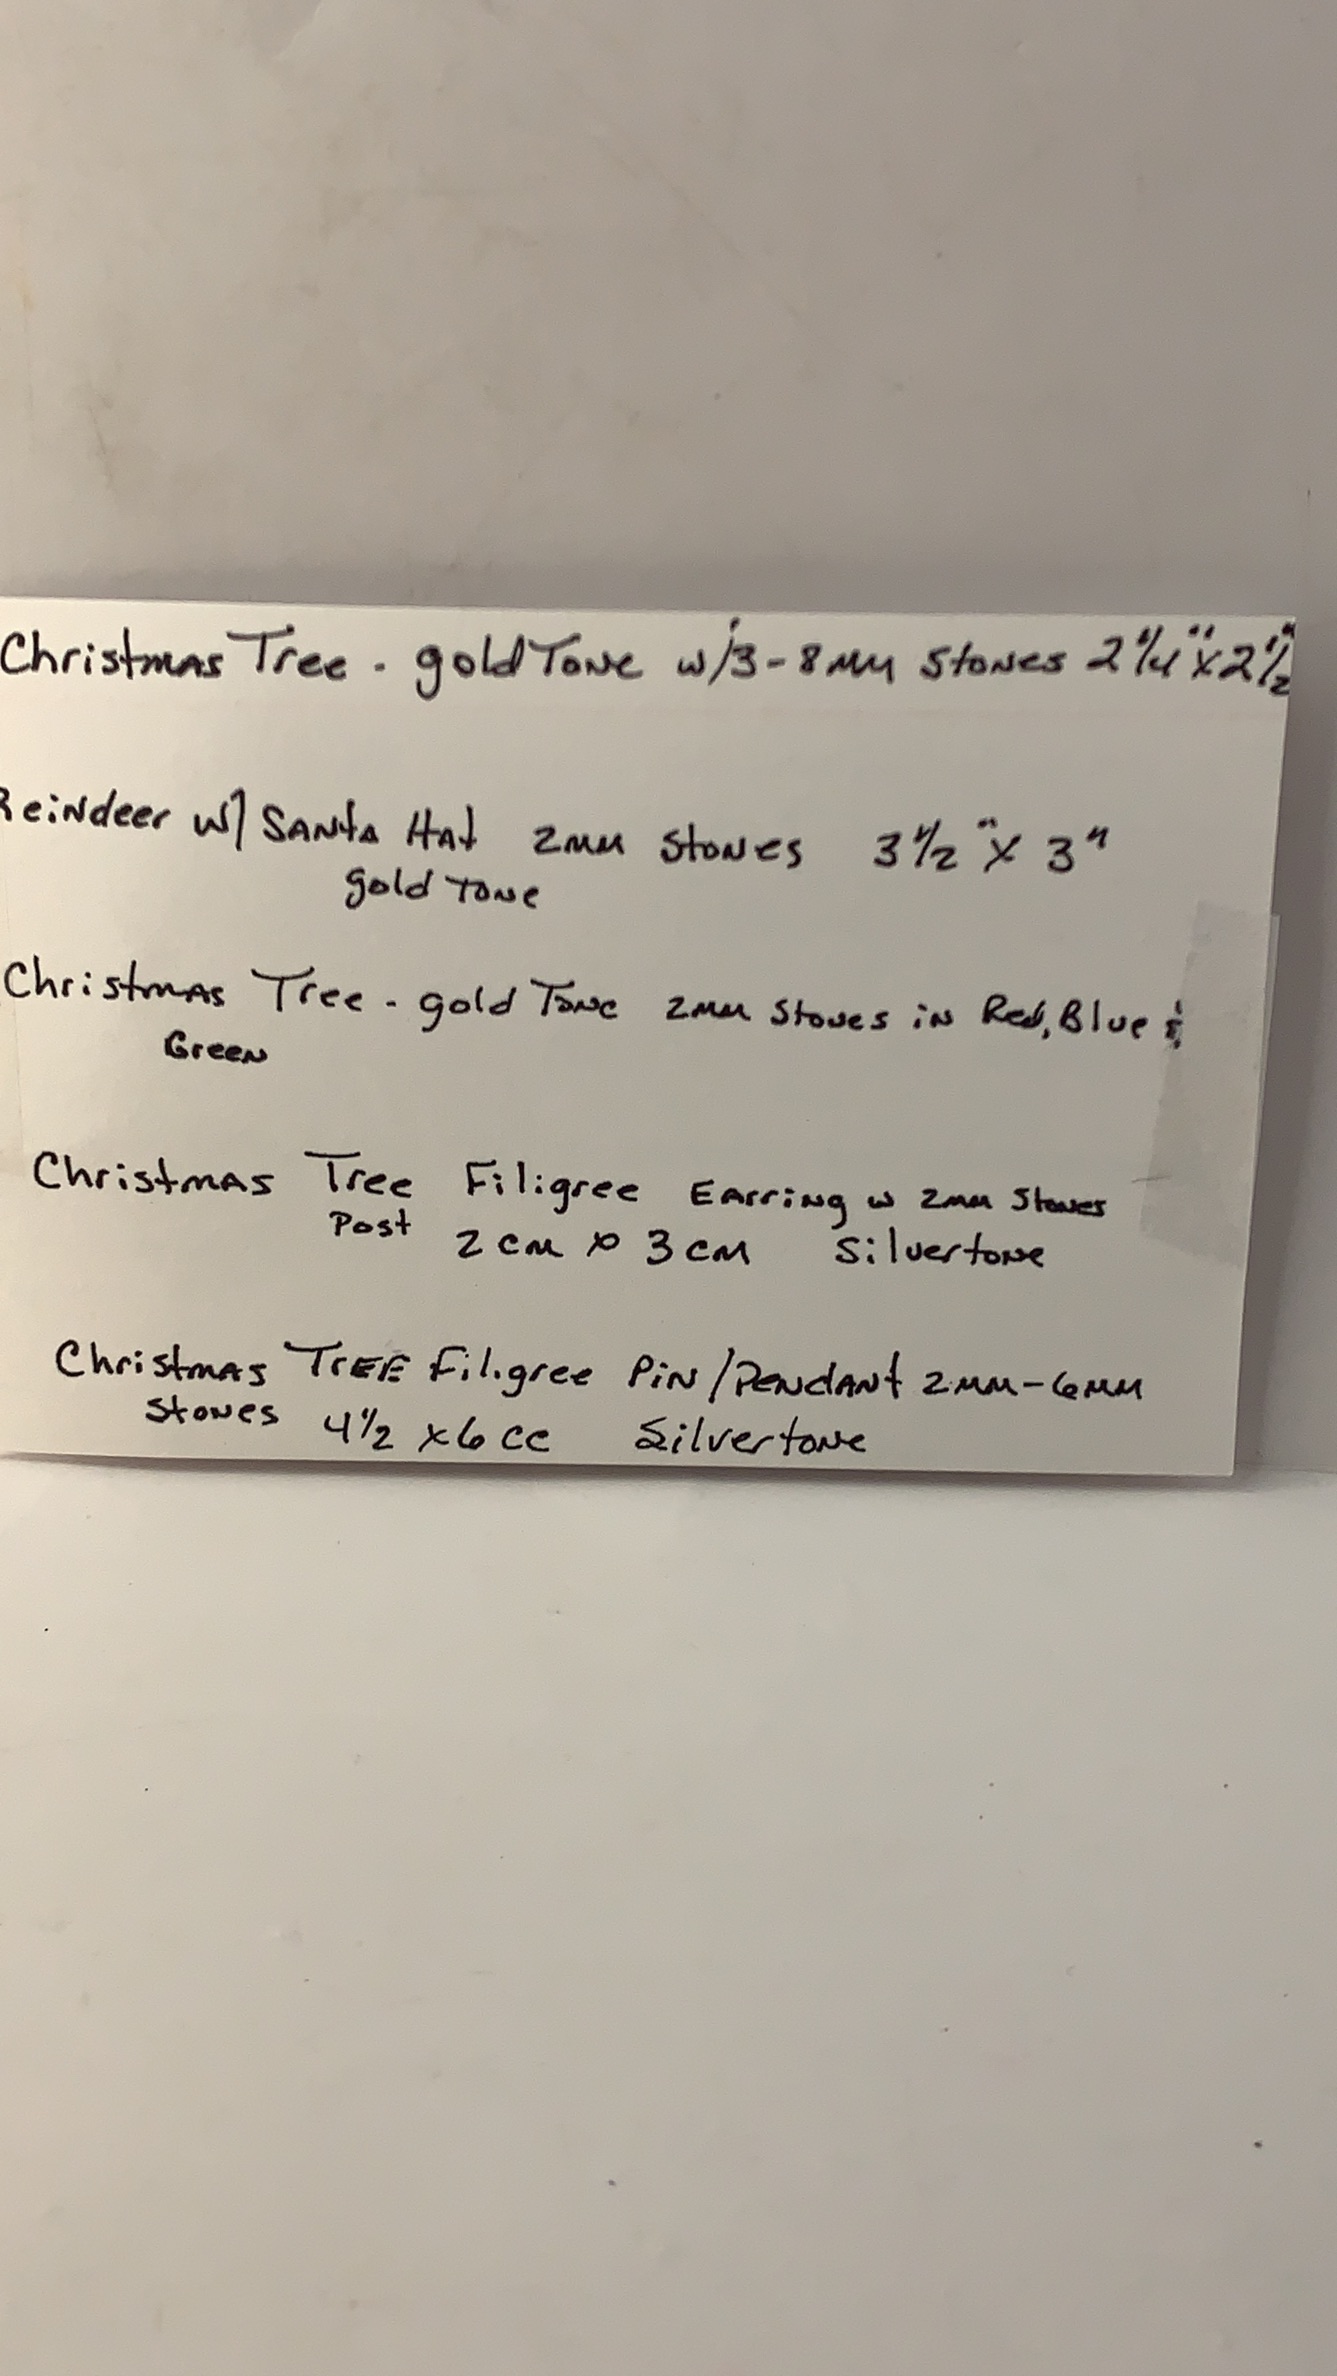 Christmas Tree - gold Tone w/3-8mm Stones 2 1/4" x 2 1/2"
Reindeer w/ Santa Hat 2mm Stones 3 1/2" x 3"
gold Tone
Christmas Tree - gold Tone 2mm Stones in Red, Blue &
Green
Christmas Tree Filigree Earring w 2mm Stones
Post 2 cm x 3 cm Silvertone
Christmas Tree Filigree Pin/Pendant 2mm-6mm
Stones 4 1/2 x 6 cc Silvertone